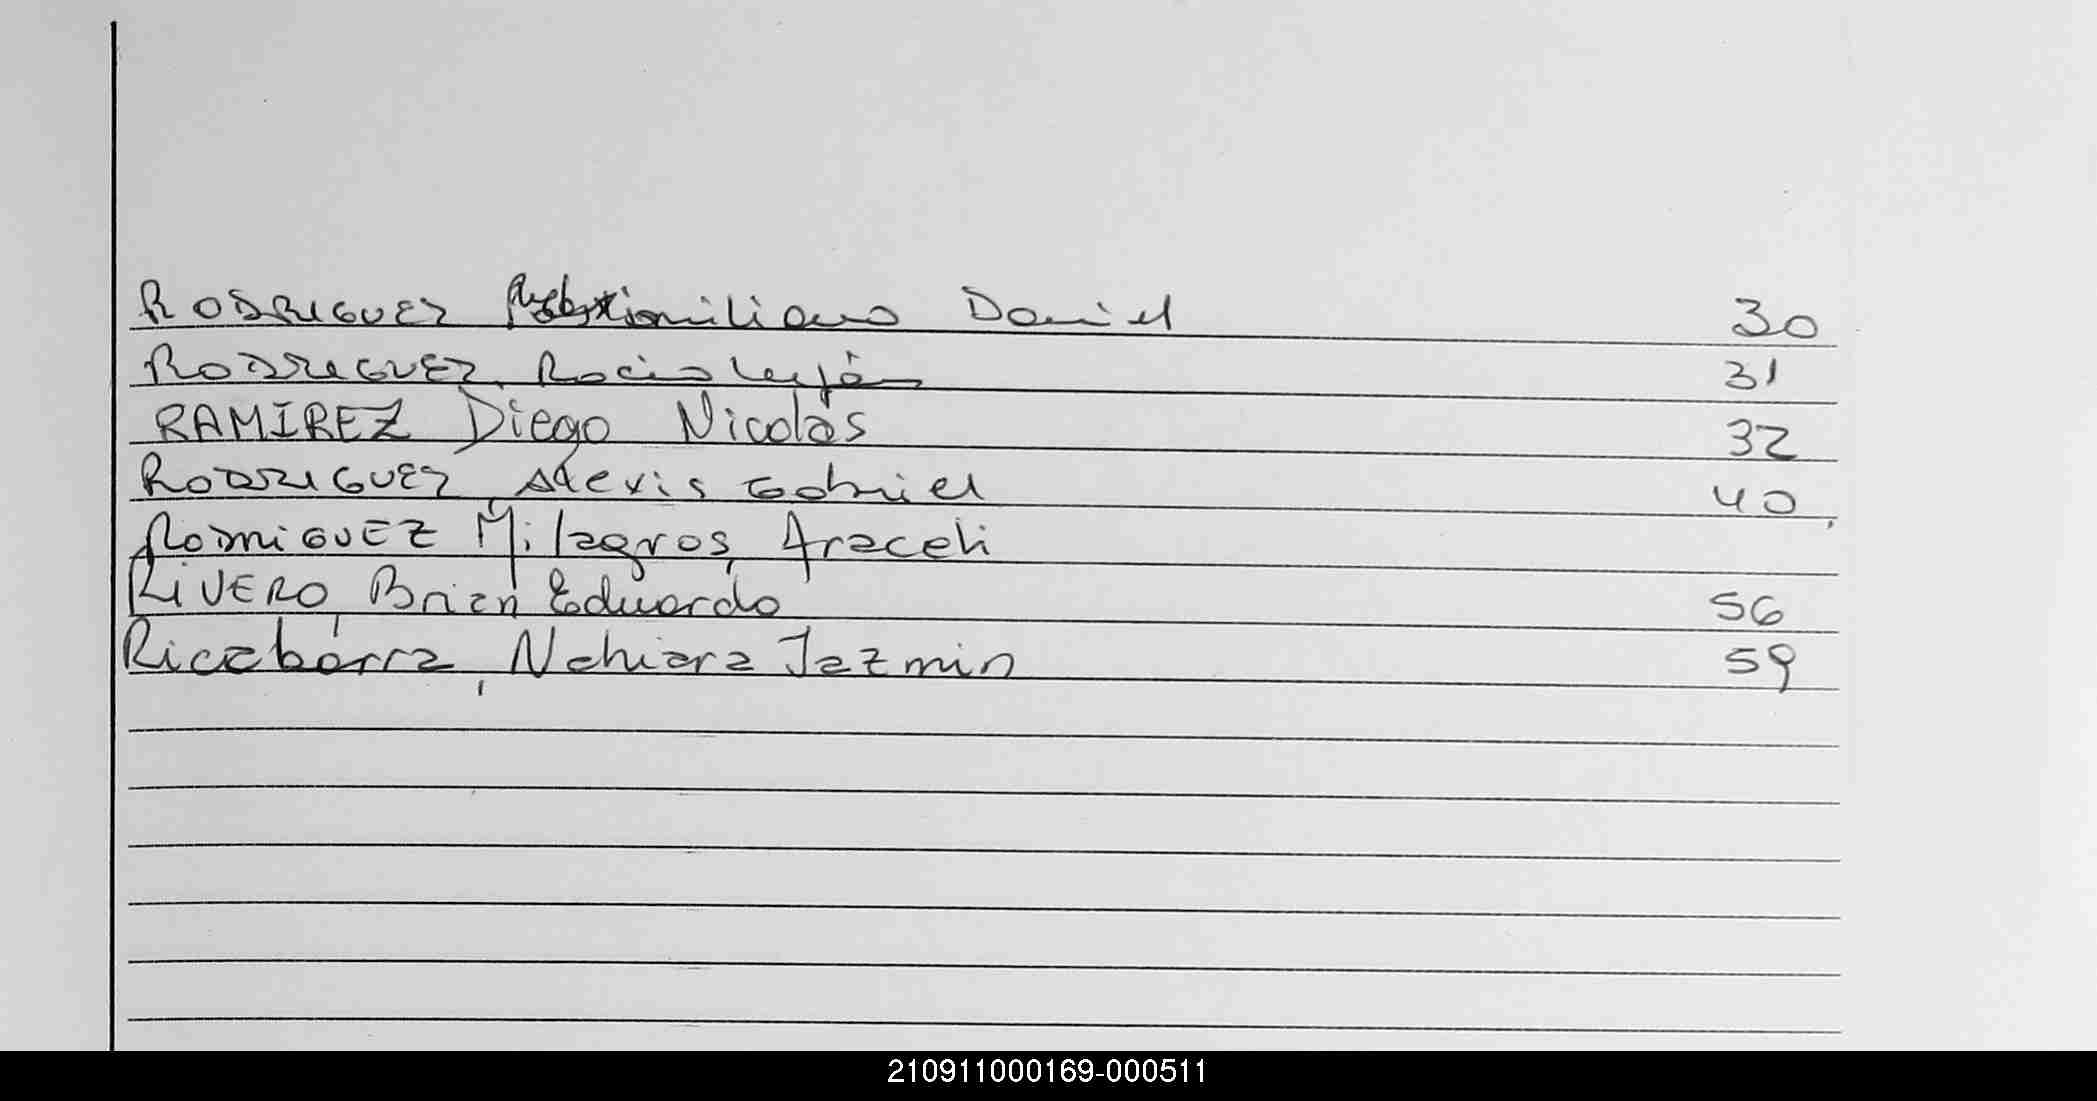 RODRIGUEZ Daniel 30
RODRIGUEZ, Rocio Luján 31
RAMIREZ Diego Nicolás 32
RODRIGUEZ, Alexis Gabriel 40
RODRIGUEZ Milagros, Araceli
RIVERO, Brian Eduardo 56
Ricabarra, Nahiara Jazmin 59
210911000169-000511